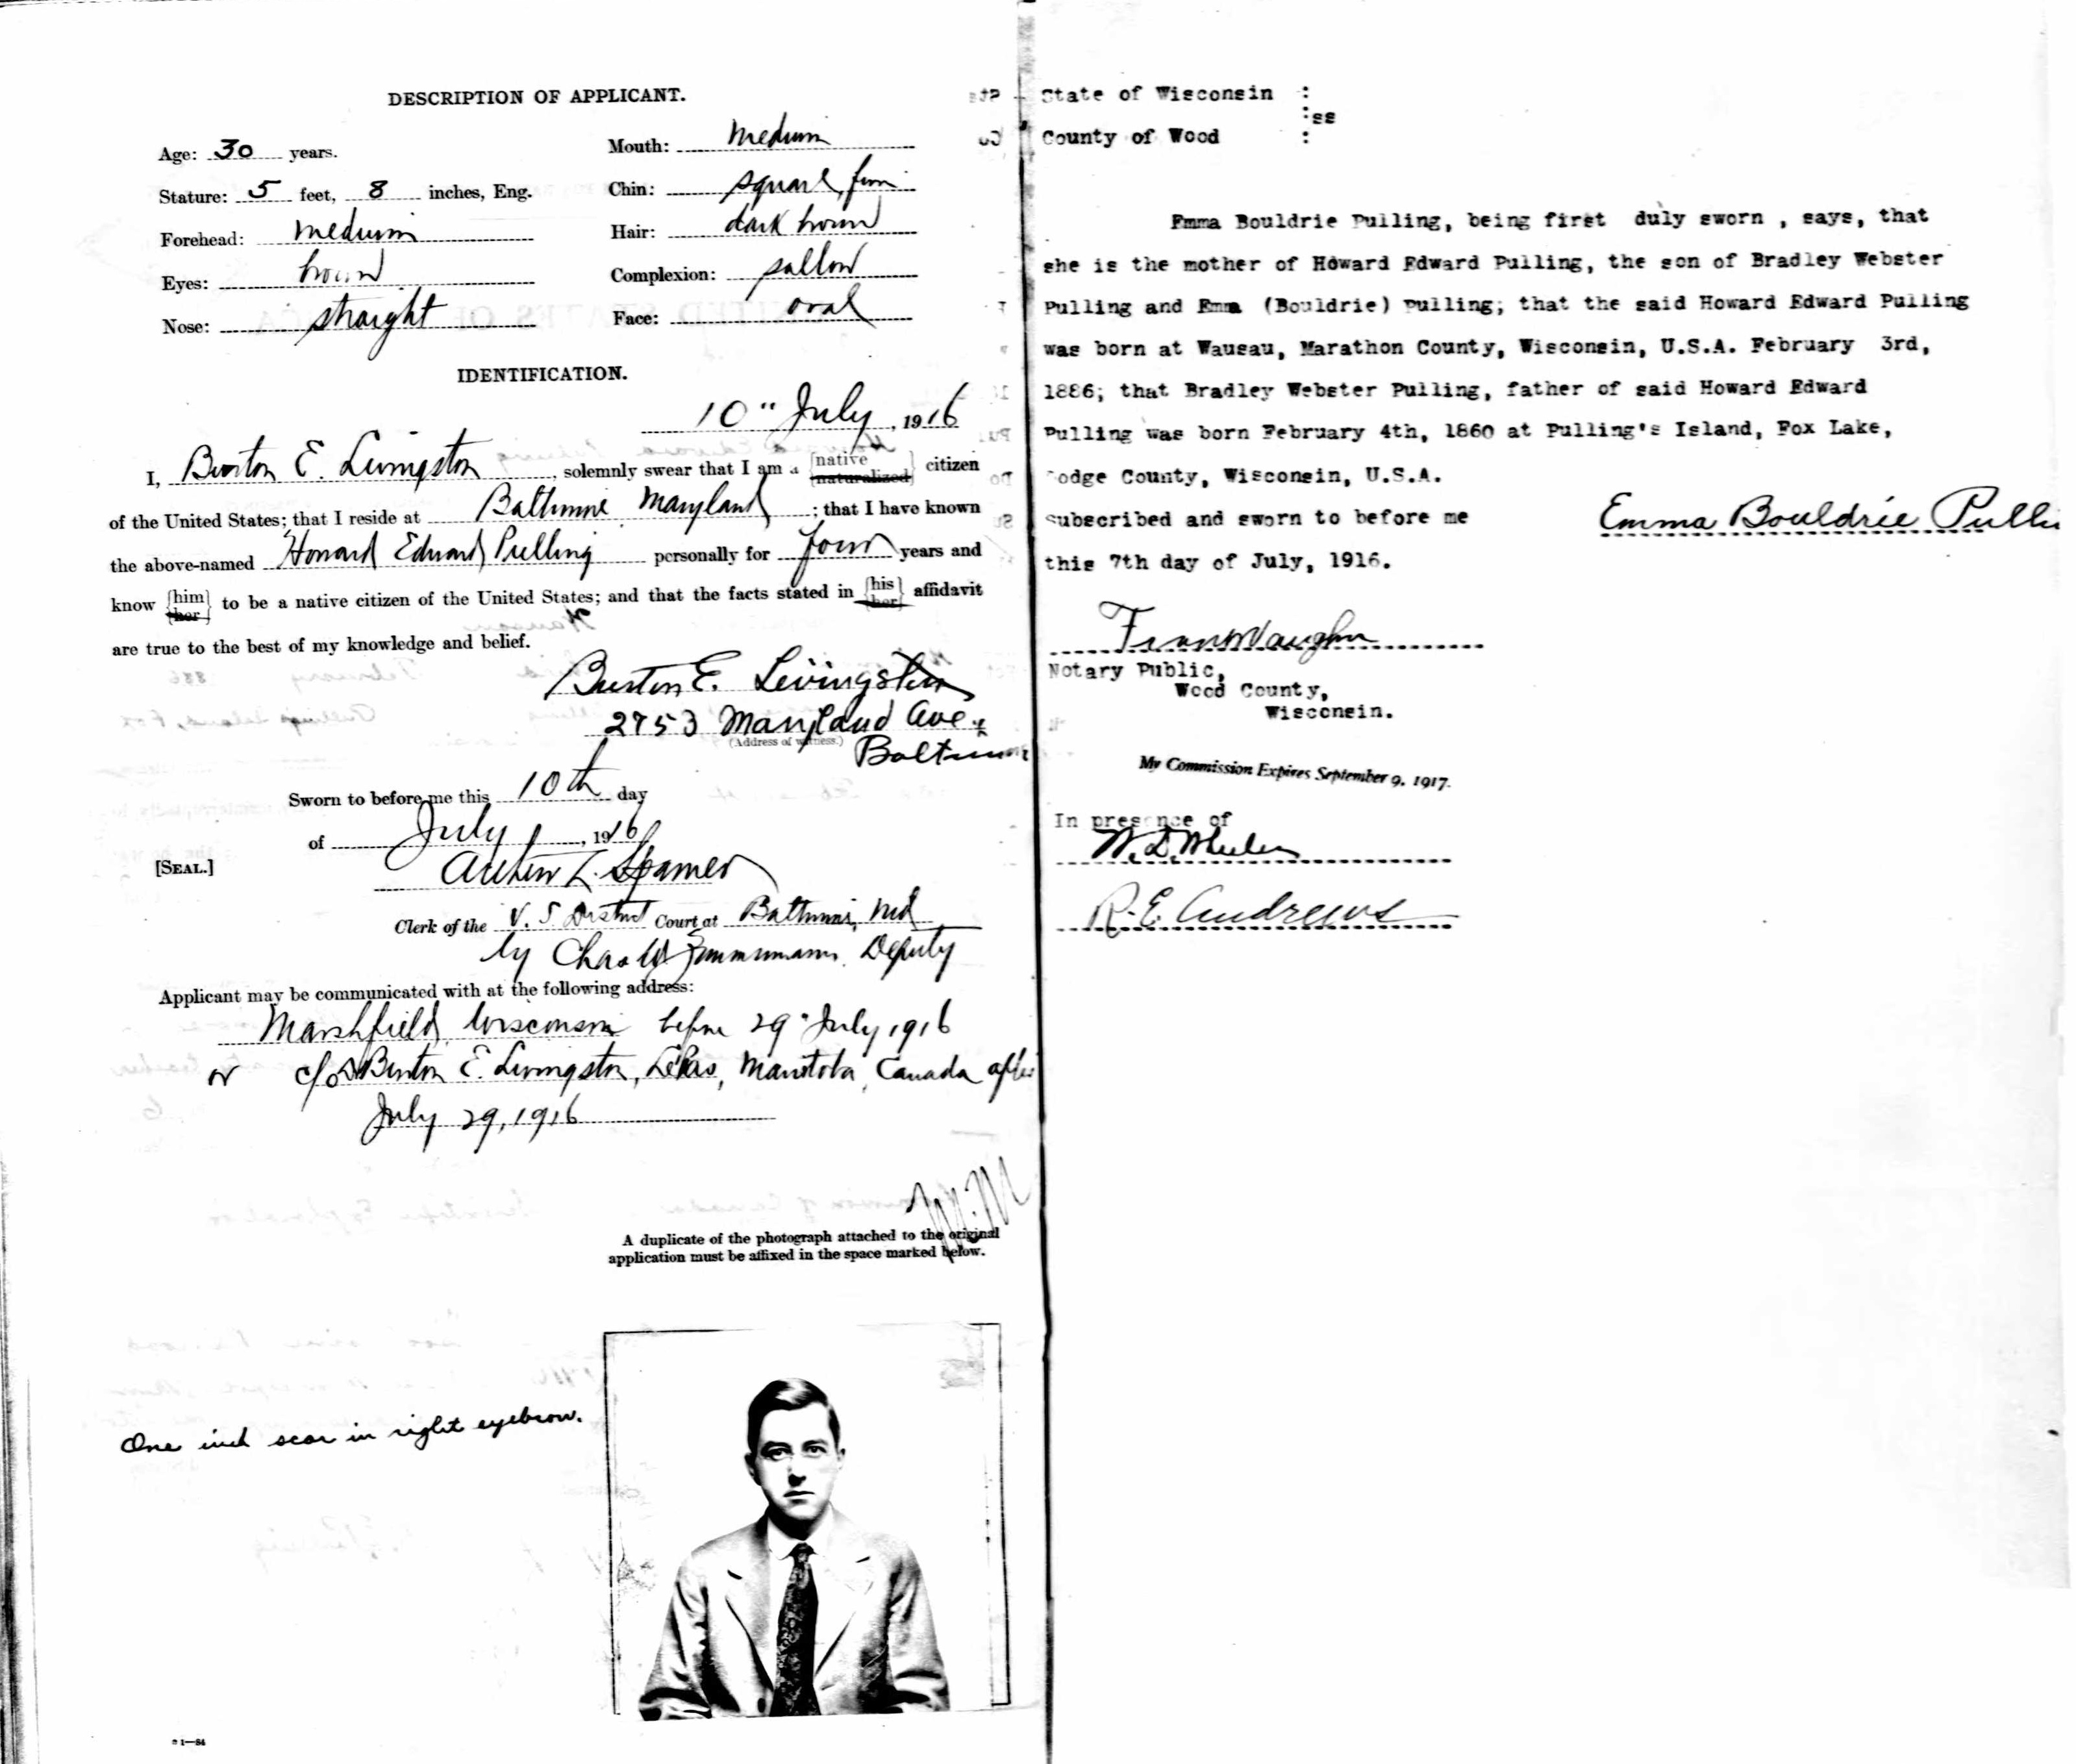 DESCRIPTION OF APPLICANT.
Age: 30 years.
Mouth: medium
Stature: 5 feet, 8 inches, Eng.
Chin: square, firm
Forehead: medium
Hair: dark brown
Eyes: brown
Complexion: sallow
Nose: straight
Face: oval
IDENTIFICATION.
10" July, 1916
I, Burton E. Livingston, solemnly swear that I am a {native} {naturalized} citizen
of the United States; that I reside at Baltimore Maryland; that I have known
the above-named Howard Edward Pulling personally for four years and
know {him} {her} to be a native citizen of the United States; and that the facts stated in {his} {her} affidavit
are true to the best of my knowledge and belief.
Burton E. Livingston
2753 Maryland Ave.,
(Address of witness.)
Baltimore
Sworn to before me this 10th day
of July, 1916
[SEAL.]
Arthur L. Spamer
Clerk of the U. S. District Court at Baltimore, Md
by Chas W Zimmermann, Deputy
Applicant may be communicated with at the following address:
Marshfield, Wisconsin before 29" July 1916
or c/o Burton E. Livingston, Manitoba, Canada after
July 29, 1916
A duplicate of the photograph attached to the original
application must be affixed in the space marked below.
One inch scar in right eyebrow.
State of Wisconsin :
:ss
County of Wood :
Emma Bouldrie Pulling, being first duly sworn , says, that
she is the mother of Howard Edward Pulling, the son of Bradley Webster
Pulling and Emma (Bouldrie) Pulling; that the said Howard Edward Pulling
was born at Wausau, Marathon County, Wisconsin, U.S.A. February 3rd,
1886; that Bradley Webster Pulling, father of said Howard Edward
Pulling was born February 4th, 1860 at Pulling's Island, Fox Lake,
odge County, Wisconsin, U.S.A.
Emma Bouldrie Pullin
Subscribed and sworn to before me
this 7th day of July, 1916.
Notary Public,
Wood County,
Wisconsin.
My Commission Expires September 9, 1917.
In presence of
W. D. Wheeler
R. E. Andrews